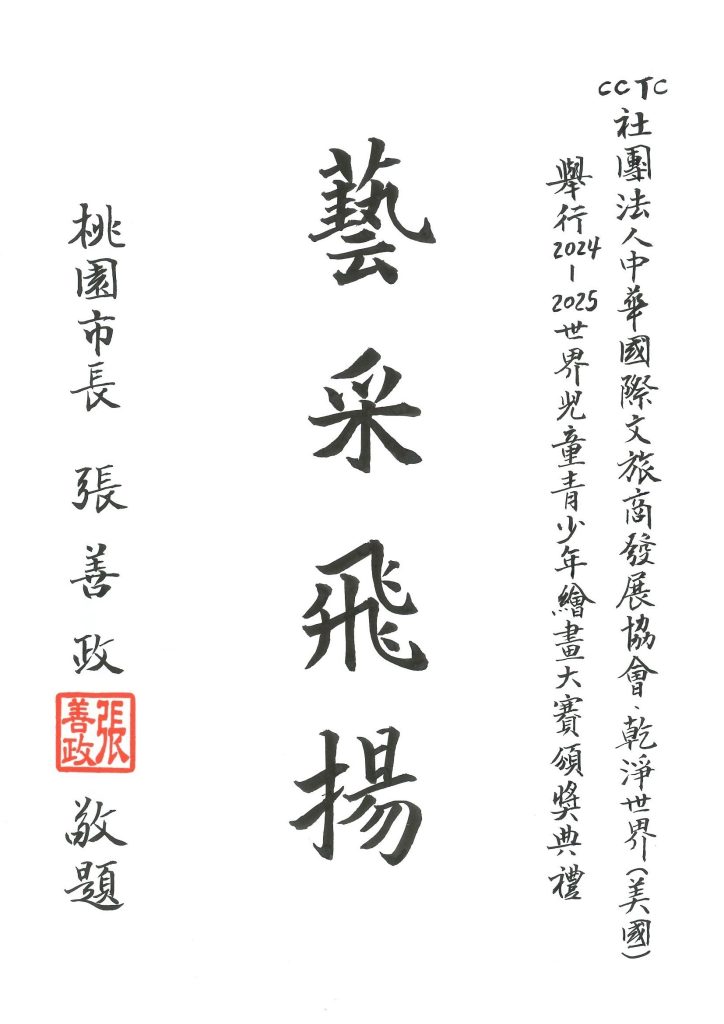 CCTC社團法人中華國際文旅商發展協會、乾淨世界(美國)
舉行2024-2025世界兒童青少年繪畫大賽頒獎典禮
藝采飛揚
桃園市長 張善政 張善政 敬題